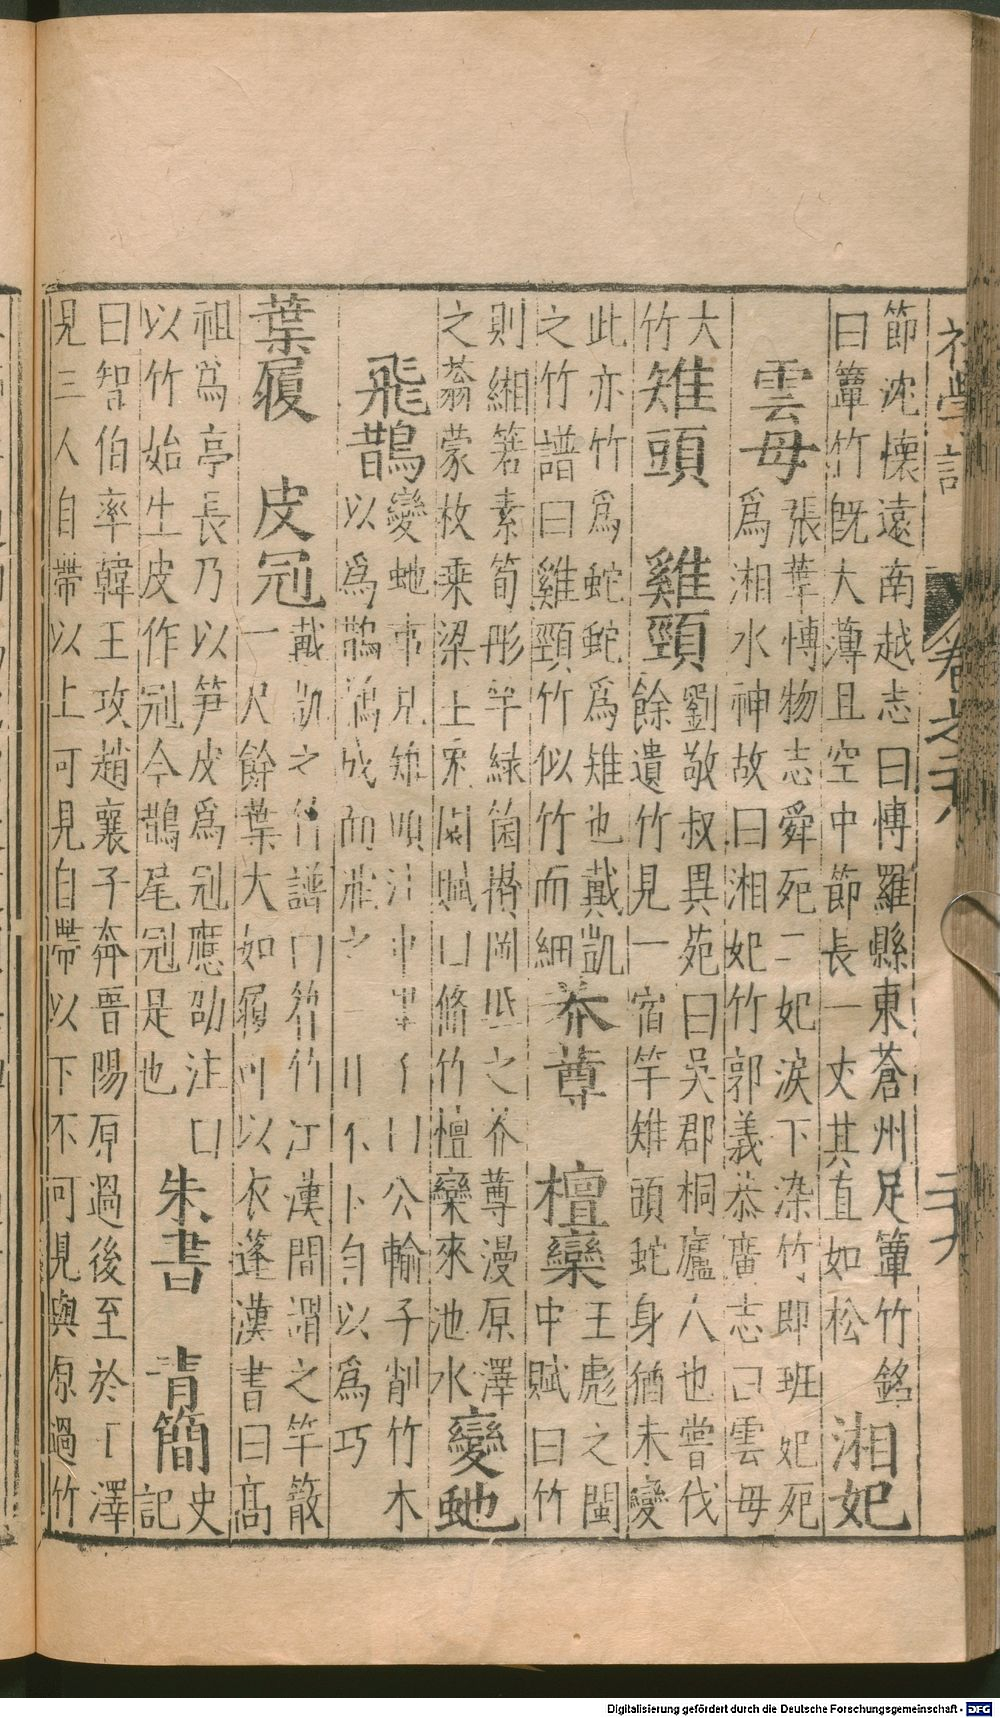 初學記 卷之二十八 二十九
節沈懷遠南越志曰博羅縣東蒼州足簞竹銘
曰簞竹旣大薄且空中節長一丈其直如松
湘妃
雲母
張華博物志舜死二妃淚下染竹即班妃死
爲湘水神故曰湘妃竹郭義恭廣志曰雲母
大
竹
雉頭 雞頸
劉敬叔異苑曰吳郡桐廬人也嘗伐
餘遺竹見一宿竿雉頭蛇身猶未變
此亦竹爲蛇蛇爲雉也戴凱
之竹譜曰雞頸竹似竹而細
莽尊 檀欒
王彪之閩
中賦曰竹
則緗箬素筍彤竿綠筒 之莽尊漫原澤
之蓊蒙枚乘梁王 園賦曰脩竹檀欒來池水
變虵
飛鵲
變虵 見雉頭注中 公輸子削竹木
以爲鵲 成而飛之 自以爲巧
葉履 皮冠
戴凱之竹譜曰 竹江漢間謂之竿 
一尺餘葉大如履可以衣蓬漢書曰高
祖爲亭長乃以笋皮爲冠應劭注曰
以竹始生皮作冠今鵲尾冠是也
朱書 青簡
史
記
曰智伯率韓王攻趙襄子奔晉陽原過後至於 澤
見三人自帶以上可見自帶以下不可見與原過竹
Digitalisierung gefördert durch die Deutsche Forschungsgemeinschaft - DFG